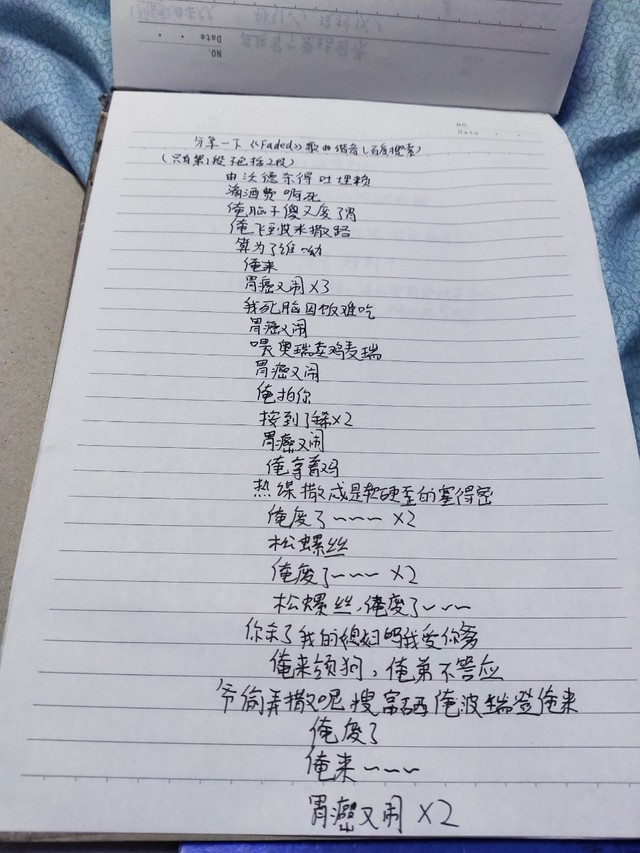 NO.
Date
NO.
Date
分享一下《Faded》歌曲谐音(百度搜索)
(只有第1段 把括2段)
由沃德东得吐埋赖
淘酒费 啊死
俺脑子傻又废了胃
俺飞到火米撒路
算为了谁呦
俺来
胃癌又闹 X3
我死脑因饭难吃
胃癌又闹
喂奥瑞卖鸡麦瑞
胃癌又闹
俺拍你
按到了锋X2
胃癌又闹
俺拿着妈
热绿撒成是软硬至的塞得密
俺废了~~~ X2
松螺丝
俺废了~~~ X2
松螺丝,俺废了~~~
你杀了我的媳妇吗我爱你爹
俺来领狗,俺弟不答应
爷偷弄撒呢搜富西俺波瑞登俺来
俺废了
俺来~~~
胃癌又闹 X2